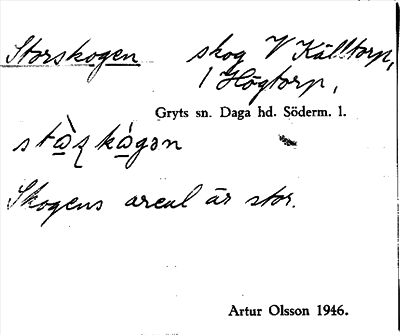 Storskogen skog V Källtorp,
1 Högtorp,
Gryts sn. Daga hd. Söderm. l.
Skogens areal är stor.
Artur Olsson 1946.